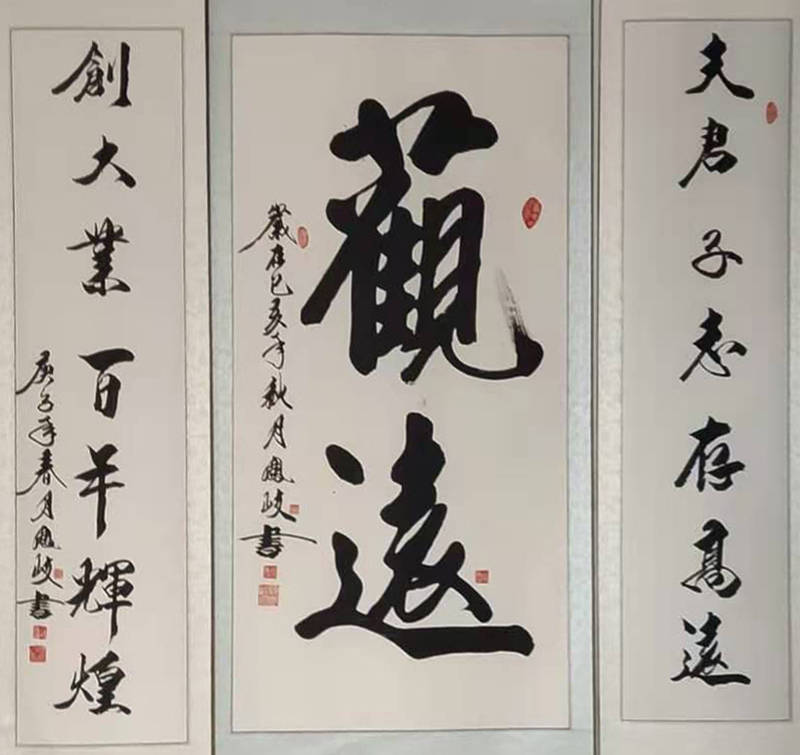 夫君子志存高遠
觀遠
歲在己亥年秋月鳳岐書
創大業百年輝煌
庚子年春月鳳岐書